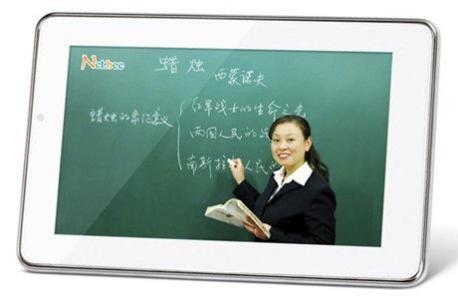 Netbee
蜡烛 西蒙诺夫
蜡烛的象征意义
红军战士的生命之光
两国人民的
南斯拉 人民